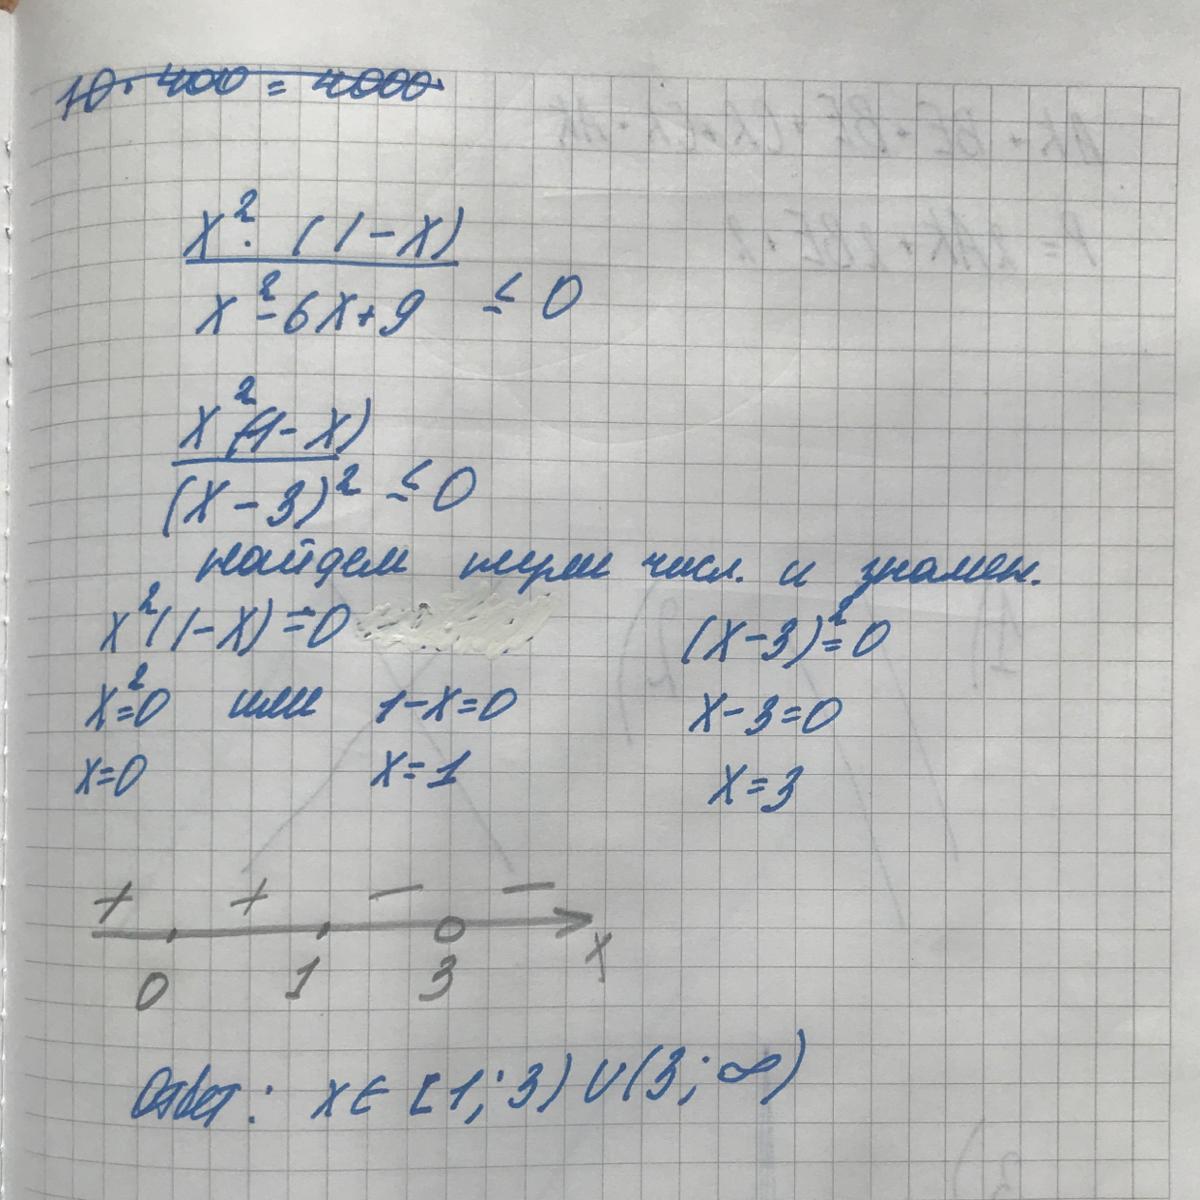 10 · 400 = 4000
x² · (1 - x)
x² - 6x + 9 ≤ 0
x²(1 - x)
(x - 3)² ≤ 0
найдем нули числ. и знамен.
x²(1 - x) = 0 (x - 3)² = 0
x² = 0 или 1 - x = 0 x - 3 = 0
x = 0 x = 1 x = 3
+ + − −
0 1 3 x
Ответ: x ∈ [1; 3) ∪ (3; ∞)